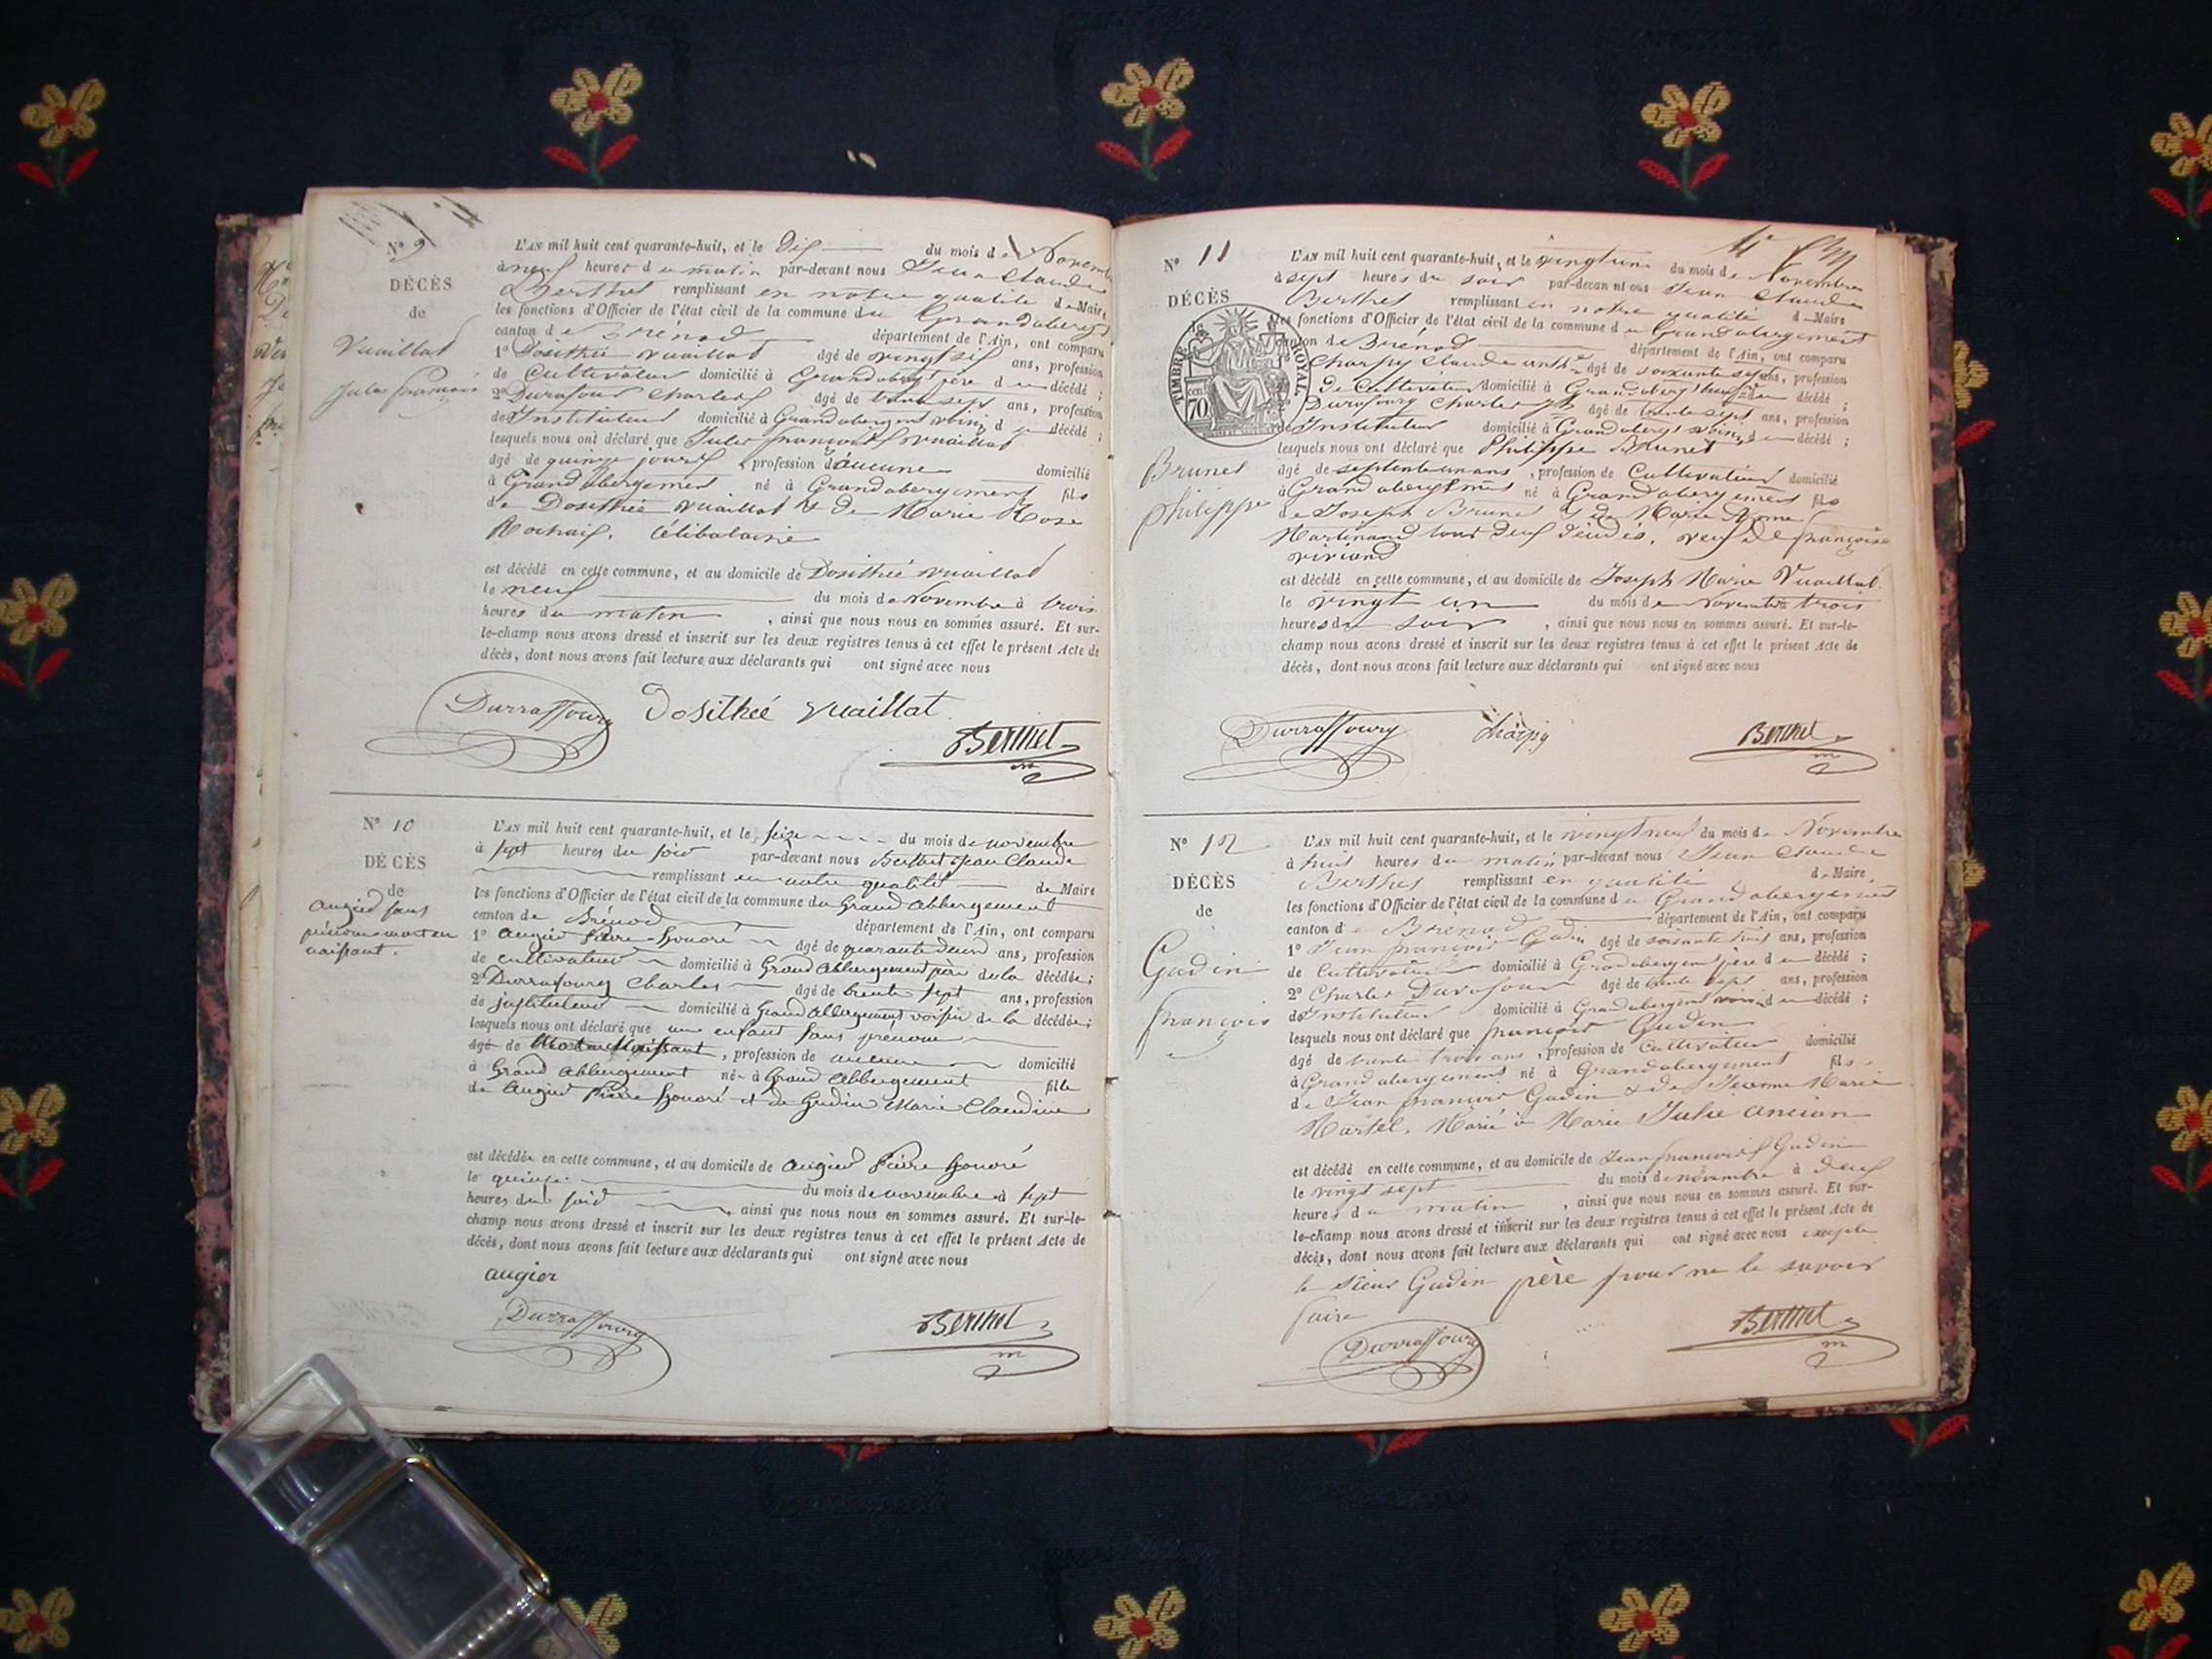 N° 9
DÉCÈS
de
Vuaillat
Jules françois
L'AN mil huit cent quarante-huit, et le Dix du mois de Novembre
à neuf heures du matin par-devant nous Jean Claude
Berthet remplissant en notre qualité de Maire
les fonctions d'Officier de l'état civil de la commune du Grandabergt
canton de Brénod département de l'Ain, ont comparu
1° Dosithée Vuaillat âgé de vingt six ans, profession
de Cultivateur domicilié à Grandabergt père du décédé ;
2° Durafour Charles âgé de trente sept ans, profession
d'Instituteur domicilié à Grandabergement voisin du décédé ;
lesquels nous ont déclaré que Jules françois Vuaillat
âgé de quinze jours, profession d'aucune domicilié
à Grand abergement né à Grandabergement fils
de Dosithée Vuaillat & de Marie Rose
Célibataire
est décédé en cette commune, et au domicile de Dosithée Vuaillat
le neuf du mois de Novembre à trois
heures du matin, ainsi que nous nous en sommes assuré. Et sur-
le-champ nous avons dressé et inscrit sur les deux registres tenus à cet effet le présent Acte de
décès, dont nous avons fait lecture aux déclarants qui ont signé avec nous
Durraffourg Dosithée Vuaillat
Berthet
N° 10
DÉCÈS
de
augier sans
prénoms mort en
naissant.
L'AN mil huit cent quarante-huit, et le seize du mois de novembre
à sept heures du soir par-devant nous Berthet Jean Claude
remplissant en notre qualité de Maire
les fonctions d'Officier de l'état civil de la commune du Grand Abbergement
canton de Brénod département de l'Ain, ont comparu
1° Augier Pierre honoré âgé de quarante deux ans, profession
de cultivateur domicilié à Grand Abbergement père de la décédée ;
2° Durrafourg Charles âgé de trente sept ans, profession
de jnstituteur domicilié à Grand Abbergement voisin de la décédée ;
lesquels nous ont déclaré que une enfant sans prénom
âgé de Mort en Naissant, profession de aucune domicilié
à Grand Abbergement né à Grand Abbergement fille
de Augier Pierre honoré et de Gudin Marie Claudine
est décédée en cette commune, et au domicile de Augier Pierre honoré
le quinze du mois de novembre à sept
heures du soir, ainsi que nous nous en sommes assuré. Et sur-le-
champ nous avons dressé et inscrit sur les deux registres tenus à cet effet le présent Acte de
décès, dont nous avons fait lecture aux déclarants qui ont signé avec nous
augier
Durraffourg
Berthet
N° 11
DÉCÈS
de
TIMBRE ROYAL
70 cen
Brunet
philippe
L'AN mil huit cent quarante-huit, et le vingt un du mois de Novembre
à sept heures du soir par-devant nous Jean Claude
Berthet remplissant en notre qualité de Maire
les fonctions d'Officier de l'état civil de la commune du Grandabergement
canton de Brénod département de l'Ain, ont comparu
Charpy Claude âgé de soixante sept ans, profession
de Cultivateur domicilié à Grandabergt du décédé ;
Durafourg Charles âgé de trente sept ans, profession
d'Instituteur domicilié à Grandabergt voisin du décédé ;
lesquels nous ont déclaré que Philippe Brunet
âgé de septante un ans, profession de Cultivateur domicilié
à Grand abergement né à Grandabergement fils
de Joseph Brunet & de Marie
Martinand tous deux décédés, veuf de françoise
viviand
est décédé en cette commune, et au domicile de Joseph Marie Vuaillat
le vingt un du mois de Novembre trois
heures du soir, ainsi que nous nous en sommes assuré. Et sur-le-
champ nous avons dressé et inscrit sur les deux registres tenus à cet effet le présent Acte de
décès, dont nous avons fait lecture aux déclarants qui ont signé avec nous
Durraffourg charpy Berthet
N° 12
DÉCÈS
de
Gudin
françois
L'AN mil huit cent quarante-huit, et le vingt neuf du mois de Novembre
à huit heures du matin par-devant nous Jean Claude
Berthet remplissant en qualité de Maire
les fonctions d'Officier de l'état civil de la commune du Grandabergement
canton de Brénod département de l'Ain, ont comparu
1° Jean françois Gudin âgé de soixante huit ans, profession
de Cultivateur domicilié à Grandabergement père du décédé ;
2° Charles Durafour âgé de trente sept ans, profession
d'Instituteur domicilié à Grandabergement voisin du décédé ;
lesquels nous ont déclaré que françois Gudin
âgé de trente trois ans, profession de Cultivateur domicilié
à Grandabergement né à Grandabergement fils
de Jean françois Gudin & de Jeanne Marie
Martel. Marié à Marie Julie Ancian
est décédé en cette commune, et au domicile de Jean françois Gudin
le vingt sept du mois de novembre à deux
heures du matin, ainsi que nous nous en sommes assuré. Et sur-
le-champ nous avons dressé et inscrit sur les deux registres tenus à cet effet le présent Acte de
décès, dont nous avons fait lecture aux déclarants qui ont signé avec nous excepté
le sieur Gudin père pour ne le savoir
faire
Durraffourg
Berthet